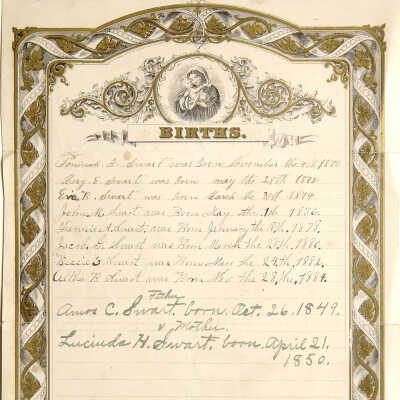 BIRTHS.
Swart was Born November the 1870
Mary E. Swart was Born may the 28th 1872
Eva B. Swart was Born March the 1874
John M. Swart was Born May the 1st 1876.
Swart was Born January the 1878.
Swart was Born March the 29th 1880.
Bessie E Swart was Born May the 24th 1882.
B Swart was Born Nov the 28, the, 1884.
Father
Amos C. Swart. born. Oct. 26. 1849.
& Mother.
Lucinda H. Swart. born. April 21.
1850.